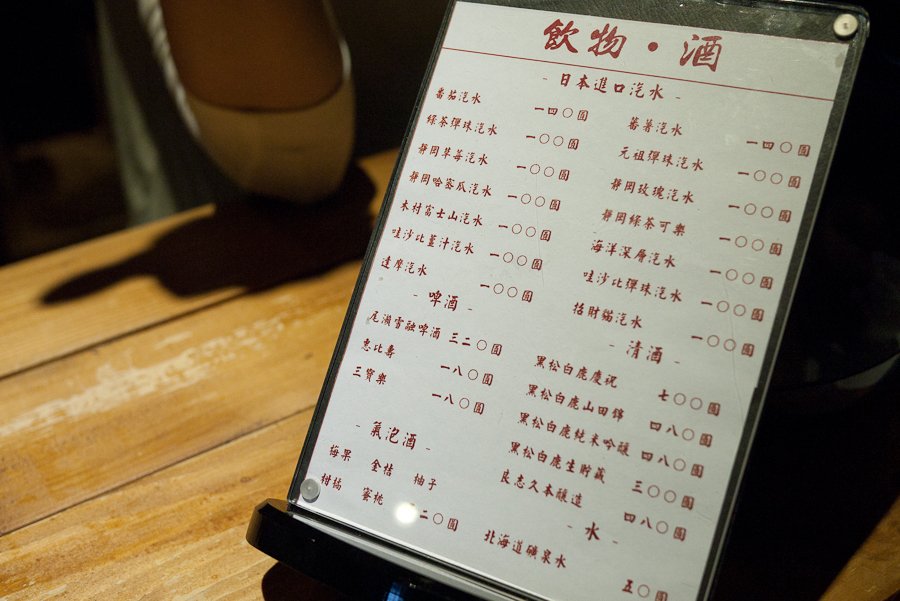 飲物·酒
- 日本進口汽水 -
番茄汽水 一四〇圓
綠茶彈珠汽水 一〇〇圓
靜岡草莓汽水 一〇〇圓
靜岡哈密瓜汽水 一〇〇圓
木村富士山汽水 一〇〇圓
哇沙比薑汁汽水 一〇〇圓
達摩汽水 一〇〇圓
蕃薯汽水 一四〇圓
元祖彈珠汽水 一〇〇圓
靜岡玫瑰汽水 一〇〇圓
靜岡綠茶可樂 一〇〇圓
海洋深層汽水 一〇〇圓
哇沙比彈珠汽水 一〇〇圓
招財貓汽水 一〇〇圓
- 啤酒 -
尾瀨雪融啤酒 三二〇圓
惠比壽 一八〇圓
三寶樂 一八〇圓
- 氣泡酒 -
梅果 金桔 柚子
柑橘 蜜桃 二〇圓
- 清酒 -
黑松白鹿慶祝 七〇〇圓
黑松白鹿山田錦 四八〇圓
黑松白鹿純米吟釀 四八〇圓
黑松白鹿生貯藏 三〇〇圓
良志久本釀造 四八〇圓
- 水 -
北海道礦泉水 五〇圓